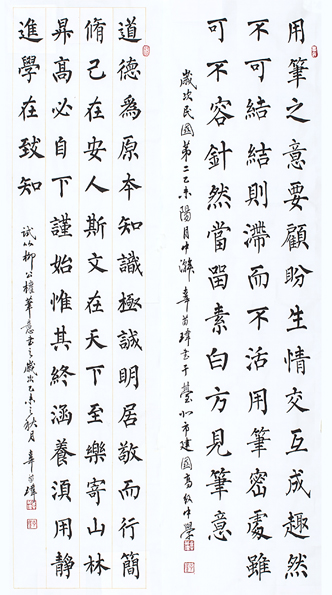 用筆之意要顧盼生情交互成趣然
不可結結則滯而不活用筆密處雖
可不容針然當留素白方見筆意
歲次民國第二乙未陽月中澣 辛瑋書于臺北市建國高級中學
道德為原本知識極誠明居敬而行簡
脩己在安人斯文在天下至樂寄山林
昇高必自下謹始惟其終涵養須用靜
進學在致知
試以柳公權筆意書之歲次乙未之秋月 辛瑋